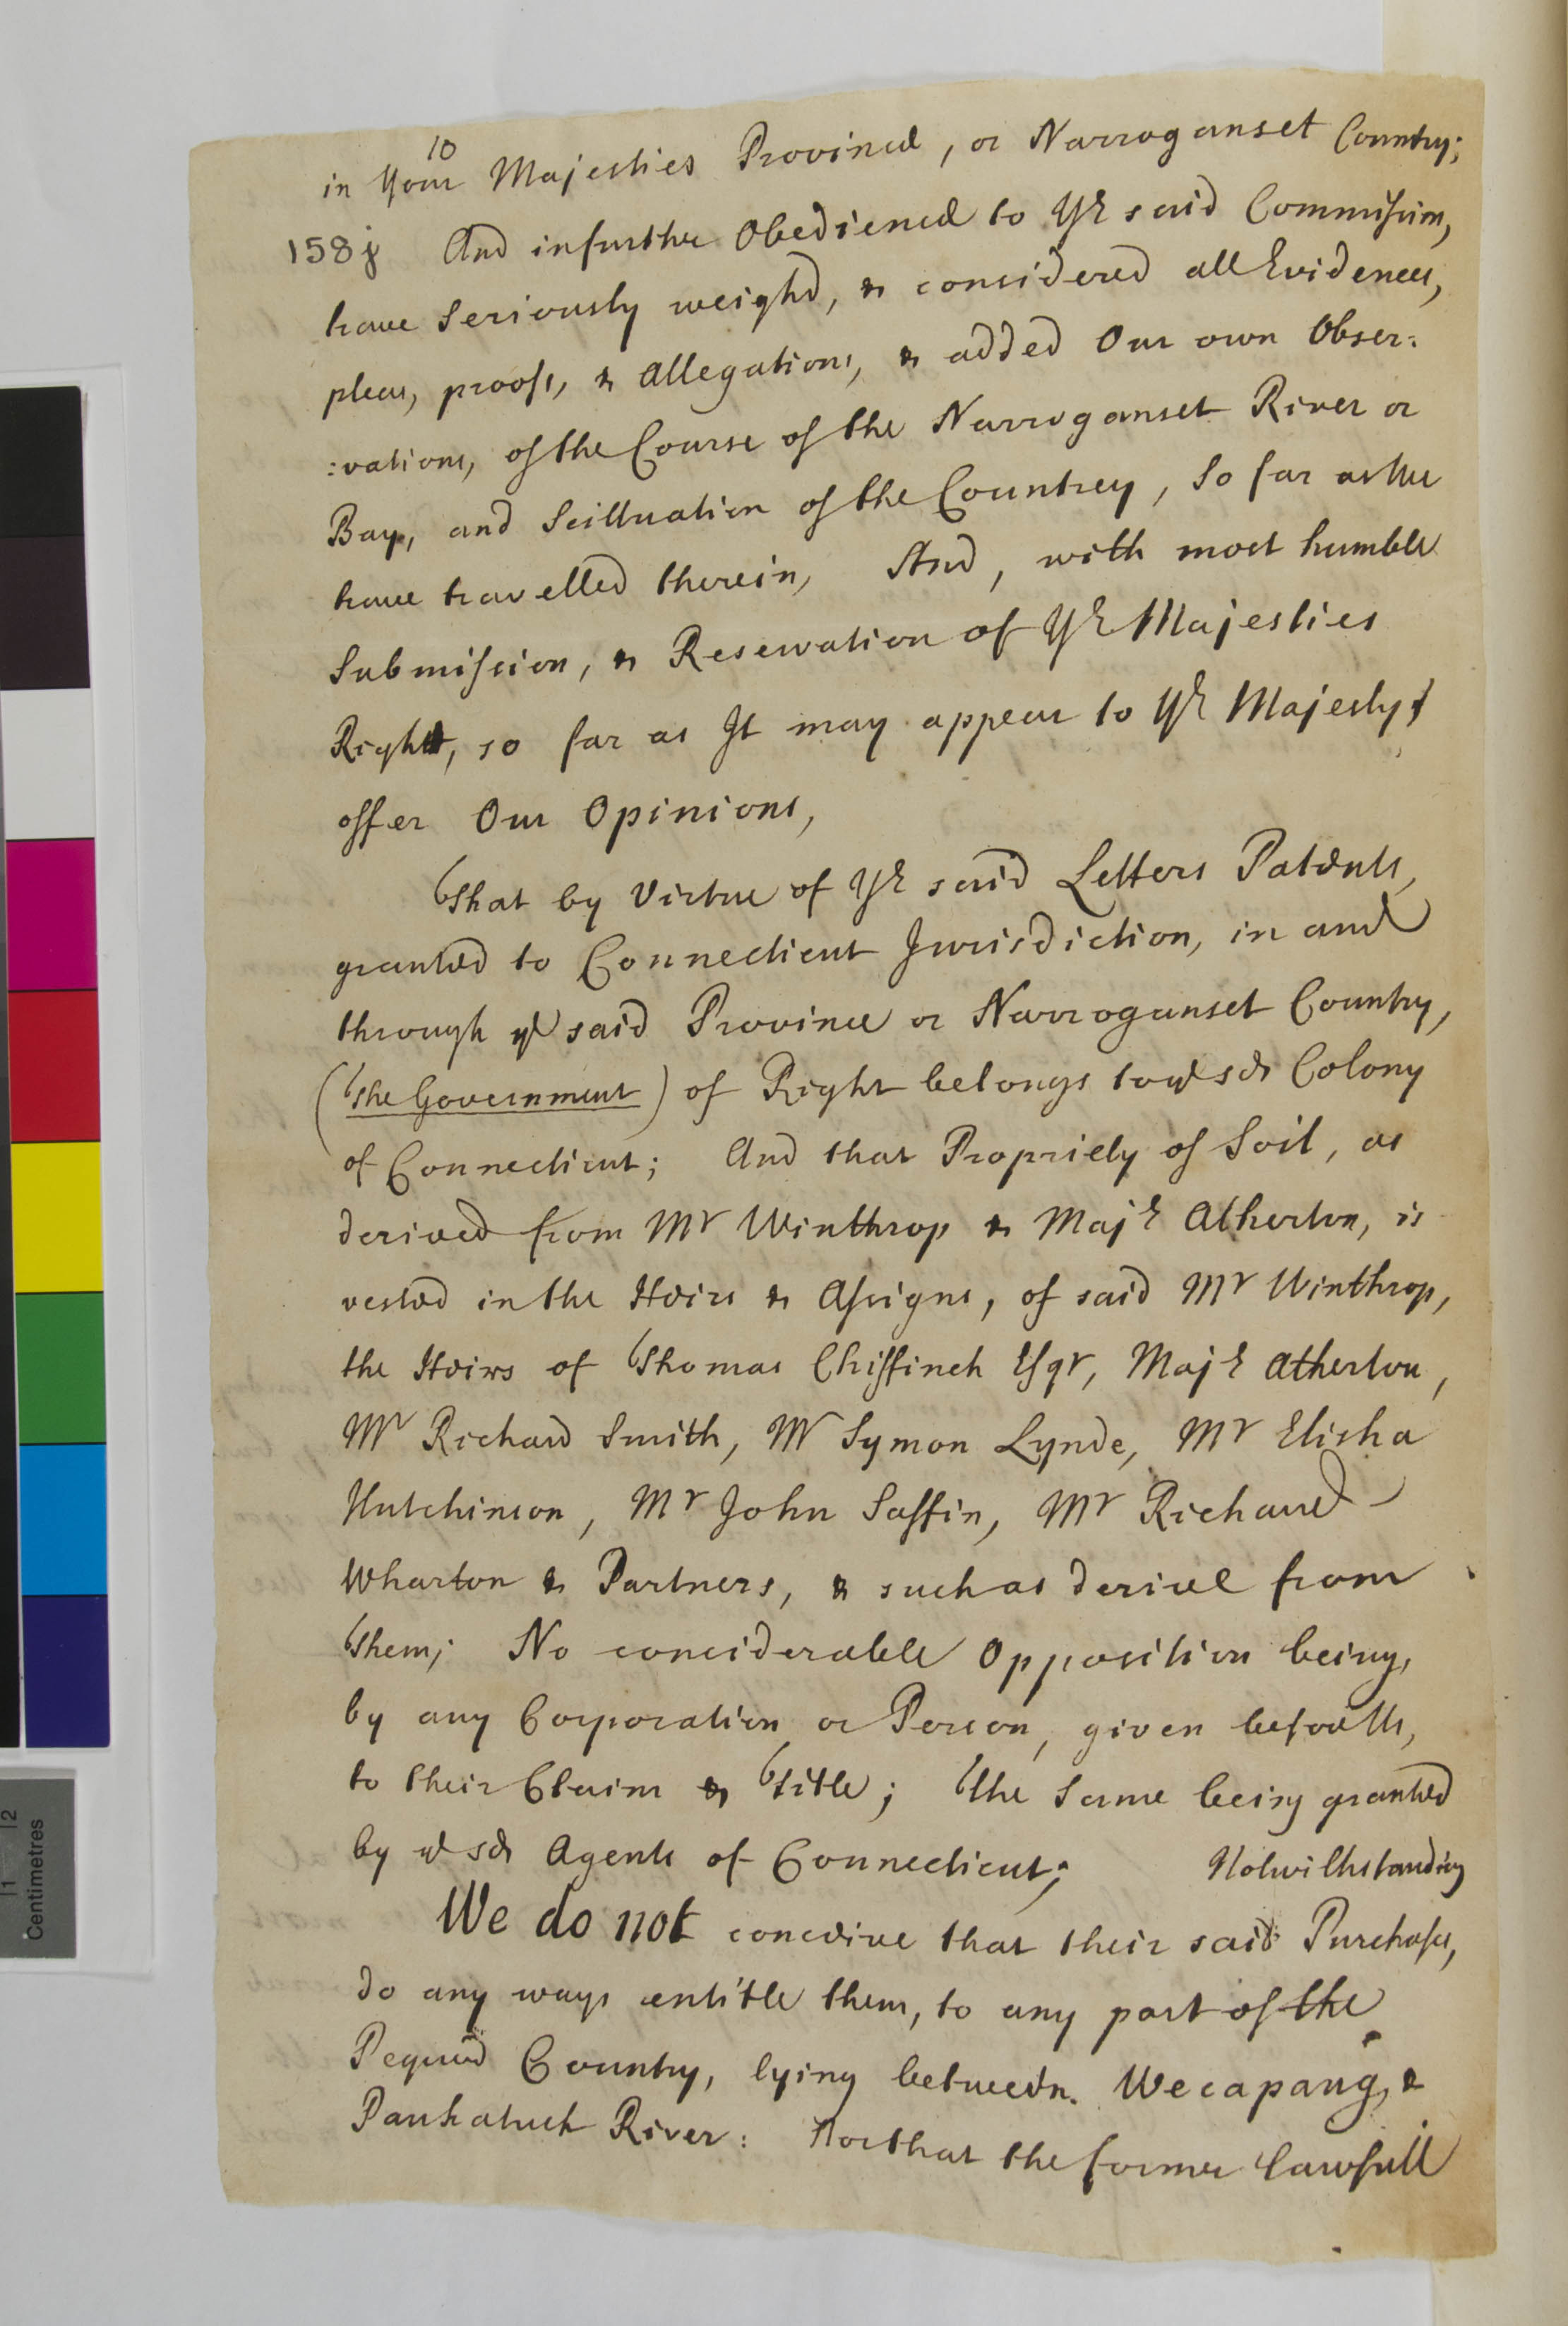 10
in Your Majesties Province, or Narroganset Country;
158j And in further Obedience to Yr said Commission,
have Seriously weighd, & considered all Evidences,
pleas, proofs, & Allegations, & added Our own Obser:
:vations, of the Course of the Narroganset River or
Bay, and Scittuation of the Countrey, So far as We
have travelled therein, And, with most humble
Submission, & Reservation of Yr Majesties
Right, so far as It may appear to Yr Majesty,
offer Our Opinions,
That by Virtue of Yr said Letters Patents,
granted to Connecticut Jurisdiction, in and
through ye said Province or Narroganset Country,
(The Government) of Right belongs to ye sd Colony
of Connecticut; And that Propriety of Soil, as
derived from Mr Winthrop & Majr Atherton, is
vested in the Heirs & Assigns, of said Mr Winthrop,
the Heirs of Thomas Chiffinch Esqr, Majr Atherton,
Mr Richard Smith, Mr Symon Lynde, Mr Elisha
Hutchinson, Mr John Saffin, Mr Richard
Wharton & Partners, & such as derive from
Them; No considerable Opposition being,
by any Corporation or Person, given before Us,
to their Claim & Title; The Same being granted
by ye sd Agents of Connecticut; Notwithstanding
We do not conceive that their said Purchases,
do any ways entitle them, to any part of the
Pequod Country, lying between Wecapaug, &
Paukatuck River: Nor that the former lawfull